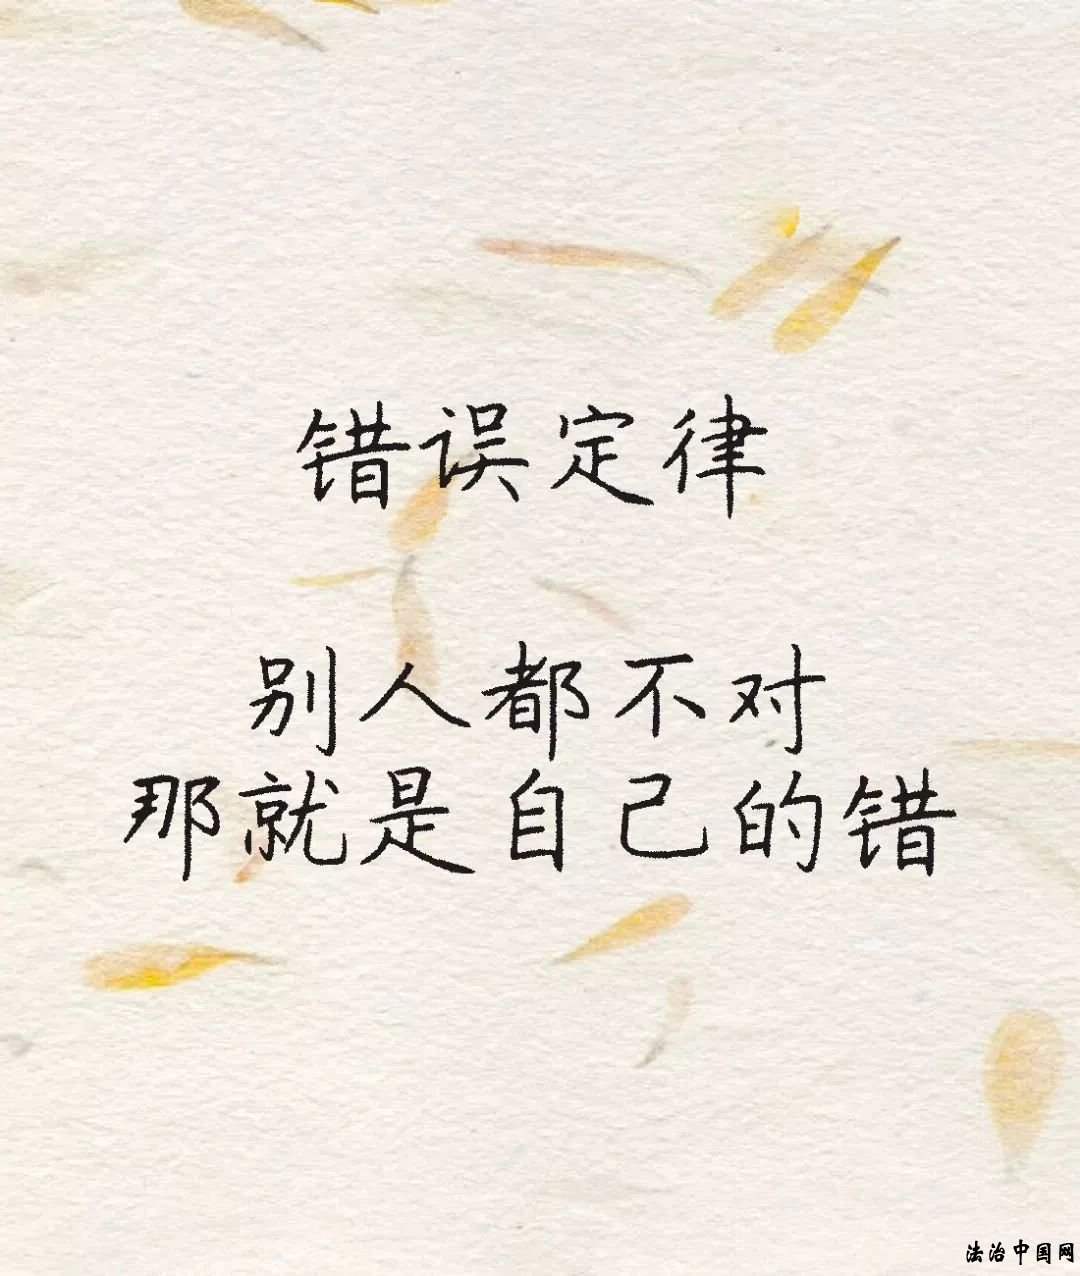 错误定律
别人都不对
那就是自己的错
法治中国网